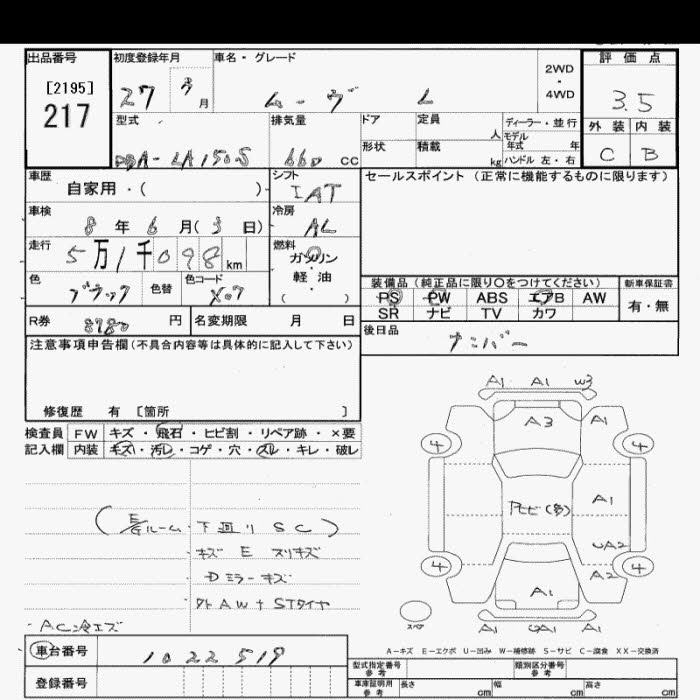 出品番号
[2195]
217
初度登録年月
27 3月
車名・グレード
ムーヴ L
2WD
・
4WD
評価点
3.5
外装 内装
C B
型式
DBA-LA150S
排気量
660 cc
ドア
形状
定員
人
積載
kg
ディーラー・並行
モデル
年式 年
ハンドル 左・右
車歴
自家用・( )
シフト
IAT
車検
8年6月(3日)
冷房
AC
走行
5万1千098km
燃料
ガソリン
・
軽油
( )
色
ブラック
色替
色コード
X07
セールスポイント(正常に機能するものに限ります)
装備品(純正品に限り〇をつけてください)
PS PW ABS エアB AW
SR ナビ TV カワ
新車保証書
有・無
R券 8780円
名変期限 月 日
後日品
ナンバー
注意事項申告欄(不具合内容等は具体的に記入して下さい)
修復歴 有 [箇所 ]
検査員
記入欄
FW キズ・飛石・ヒビ割・リペア跡・×要
内装 キズ・汚レ・コゲ・穴・スレ・キレ・破レ
下廻り SC)
キズ E スリキズ
Dミラーキズ
外AW+STタイヤ
・AC冷エズ
A1 A1 W3
A3 A1
4 4
A1
UA2
A2
4 4
A1
A1 UA1 A1
スペア
A-キズ E-エクボ U-凹み W-補修跡 S-サビ C-腐食 XX-交換済
車台番号
1022519
登録番号
型式指定番号
参考
類別区分番号
参考
車庫証明用
参考
長さ cm 幅 cm 高さ cm